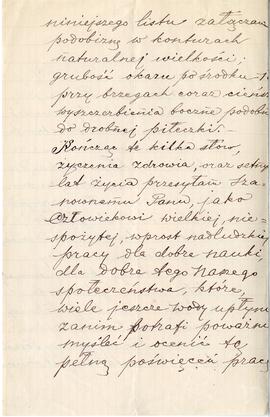 niniejszego listu załączam
podobiznę w konturach
naturalnej wielkości;
grubość okazu po środku
przy brzegach coraz cieńsz
wyszczerbienia boczne podobn
do drobnej piłeczki. -
Kończąc te kilka słów,
życzenia zdrowia, oraz setnych
lat życia przesyłam Sza-
nownemu Panu, jako
Człowiekowi wielkiej, nie-
spożytej, wprost nadludzkiej
pracy dla dobra nauki,
dla dobra tego naszego
społeczeństwa, które,
wiele jeszcze wody upłynie
zanim potrafi poważnie
myśleć i ocenić tę
pełną poświęceń pracę